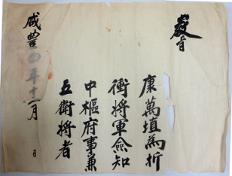 敎旨
康萬埴爲折
衝將軍僉知
中樞府事兼
五衛將者
咸豊年十月 日